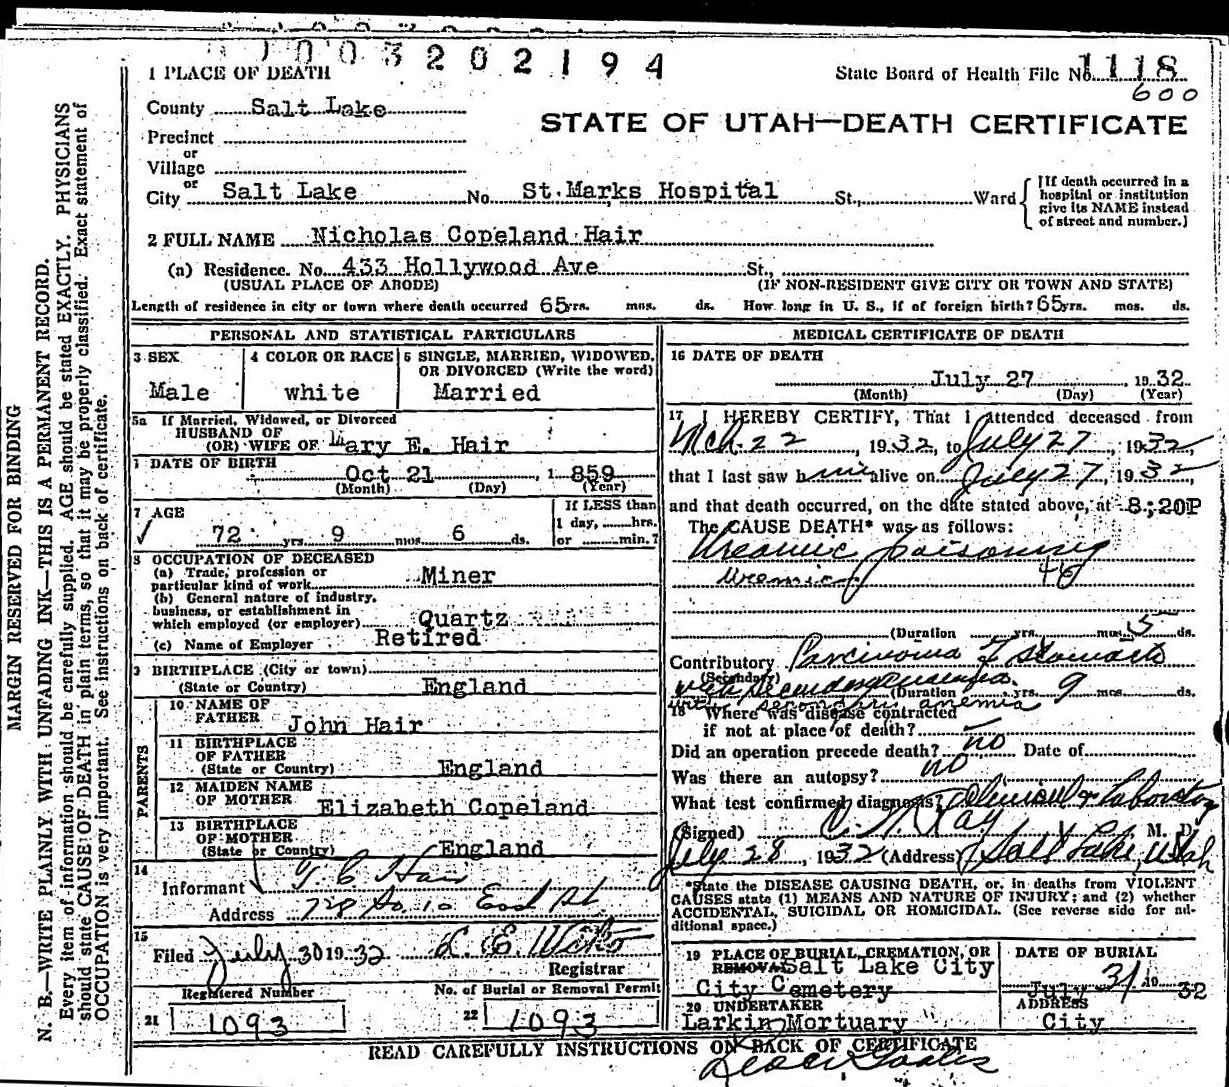 1003202194
1 PLACE OF DEATH
State Board of Health File No. 1118
600
County Salt Lake
STATE OF UTAH—DEATH CERTIFICATE
Precinct
or
Village
or
City Salt Lake No. St.Marks Hospital St., Ward
[If death occurred in a hospital or institution give its NAME instead of street and number.]
2 FULL NAME Nicholas Copeland Hair
(a) Residence. No. 433 Hollywood Ave St.,
(USUAL PLACE OF ABODE) (IF NON-RESIDENT GIVE CITY OR TOWN AND STATE)
Length of residence in city or town where death occurred 65 yrs. mos. ds. How long in U. S., if of foreign birth? 65 yrs. mos. ds.
PERSONAL AND STATISTICAL PARTICULARS
3 SEX
Male
4 COLOR OR RACE
white
5 SINGLE, MARRIED, WIDOWED, OR DIVORCED (Write the word)
Married
5a If Married, Widowed, or Divorced
HUSBAND OF
(OR) WIFE OF Mary E. Hair
DATE OF BIRTH
Oct 21, 1859
(Month) (Day) (Year)
7 AGE
72 yrs 9 mos 6 ds.
If LESS than
1 day, hrs.
or min.?
8 OCCUPATION OF DECEASED
(a) Trade, profession or
particular kind of work Miner
(b) General nature of industry,
business, or establishment in
which employed (or employer) Quartz
(c) Name of Employer Retired
9 BIRTHPLACE (City or town)
(State or Country) England
PARENTS
10 NAME OF
FATHER John Hair
11 BIRTHPLACE
OF FATHER
(State or Country) England
12 MAIDEN NAME
OF MOTHER Elizabeth Copeland
13 BIRTHPLACE
OF MOTHER
(State or Country) England
14
Informant T. C. Hair
Address 728 So. 10 East St.
15
Filed July 30 19 32
Registrar
Registered Number
21 1093
No. of Burial or Removal Permit
22 1093
MEDICAL CERTIFICATE OF DEATH
16 DATE OF DEATH
July 27, 1932
(Month) (Day) (Year)
17 I HEREBY CERTIFY, That I attended deceased from
Mch. 22, 1932, to July 27, 1932,
that I last saw him alive on July 27, 1932
and that death occurred, on the date stated above, at 8:20P
The CAUSE DEATH* was as follows:
Uraemic poisoning
Uremic
(Duration yrs. mos. 5 ds.
Contributory Carcinoma of Stomach
(Secondary) with Secondary anemia.
(Duration yrs. 9 mos. ds.
with secondary anemia
18 Where was disease contracted
if not at place of death?
Did an operation precede death? no Date of
Was there an autopsy? no
What test confirmed diagnosis? Clinical & Laboratory
(Signed) M. D.
July 28, 1932 (Address) Salt Lake, Utah
*State the DISEASE CAUSING DEATH, or, in deaths from VIOLENT
CAUSES state (1) MEANS AND NATURE OF INJURY; and (2) whether
ACCIDENTAL, SUICIDAL OR HOMICIDAL. (See reverse side for additional space.)
19 PLACE OF BURIAL, CREMATION, OR
REMOVAL Salt Lake City
City Cemetery
DATE OF BURIAL
July 31 19 32
20 UNDERTAKER
Larkin Mortuary
ADDRESS
City
READ CAREFULLY INSTRUCTIONS ON BACK OF CERTIFICATE
MARGIN RESERVED FOR BINDING
N. B.—WRITE PLAINLY WITH UNFADING INK—THIS IS A PERMANENT RECORD.
Every item of information should be carefully supplied. AGE should be stated EXACTLY. PHYSICIANS
should state CAUSE OF DEATH in plain terms, so that it may be properly classified. Exact statement of
OCCUPATION is very important. See instructions on back of certificate.